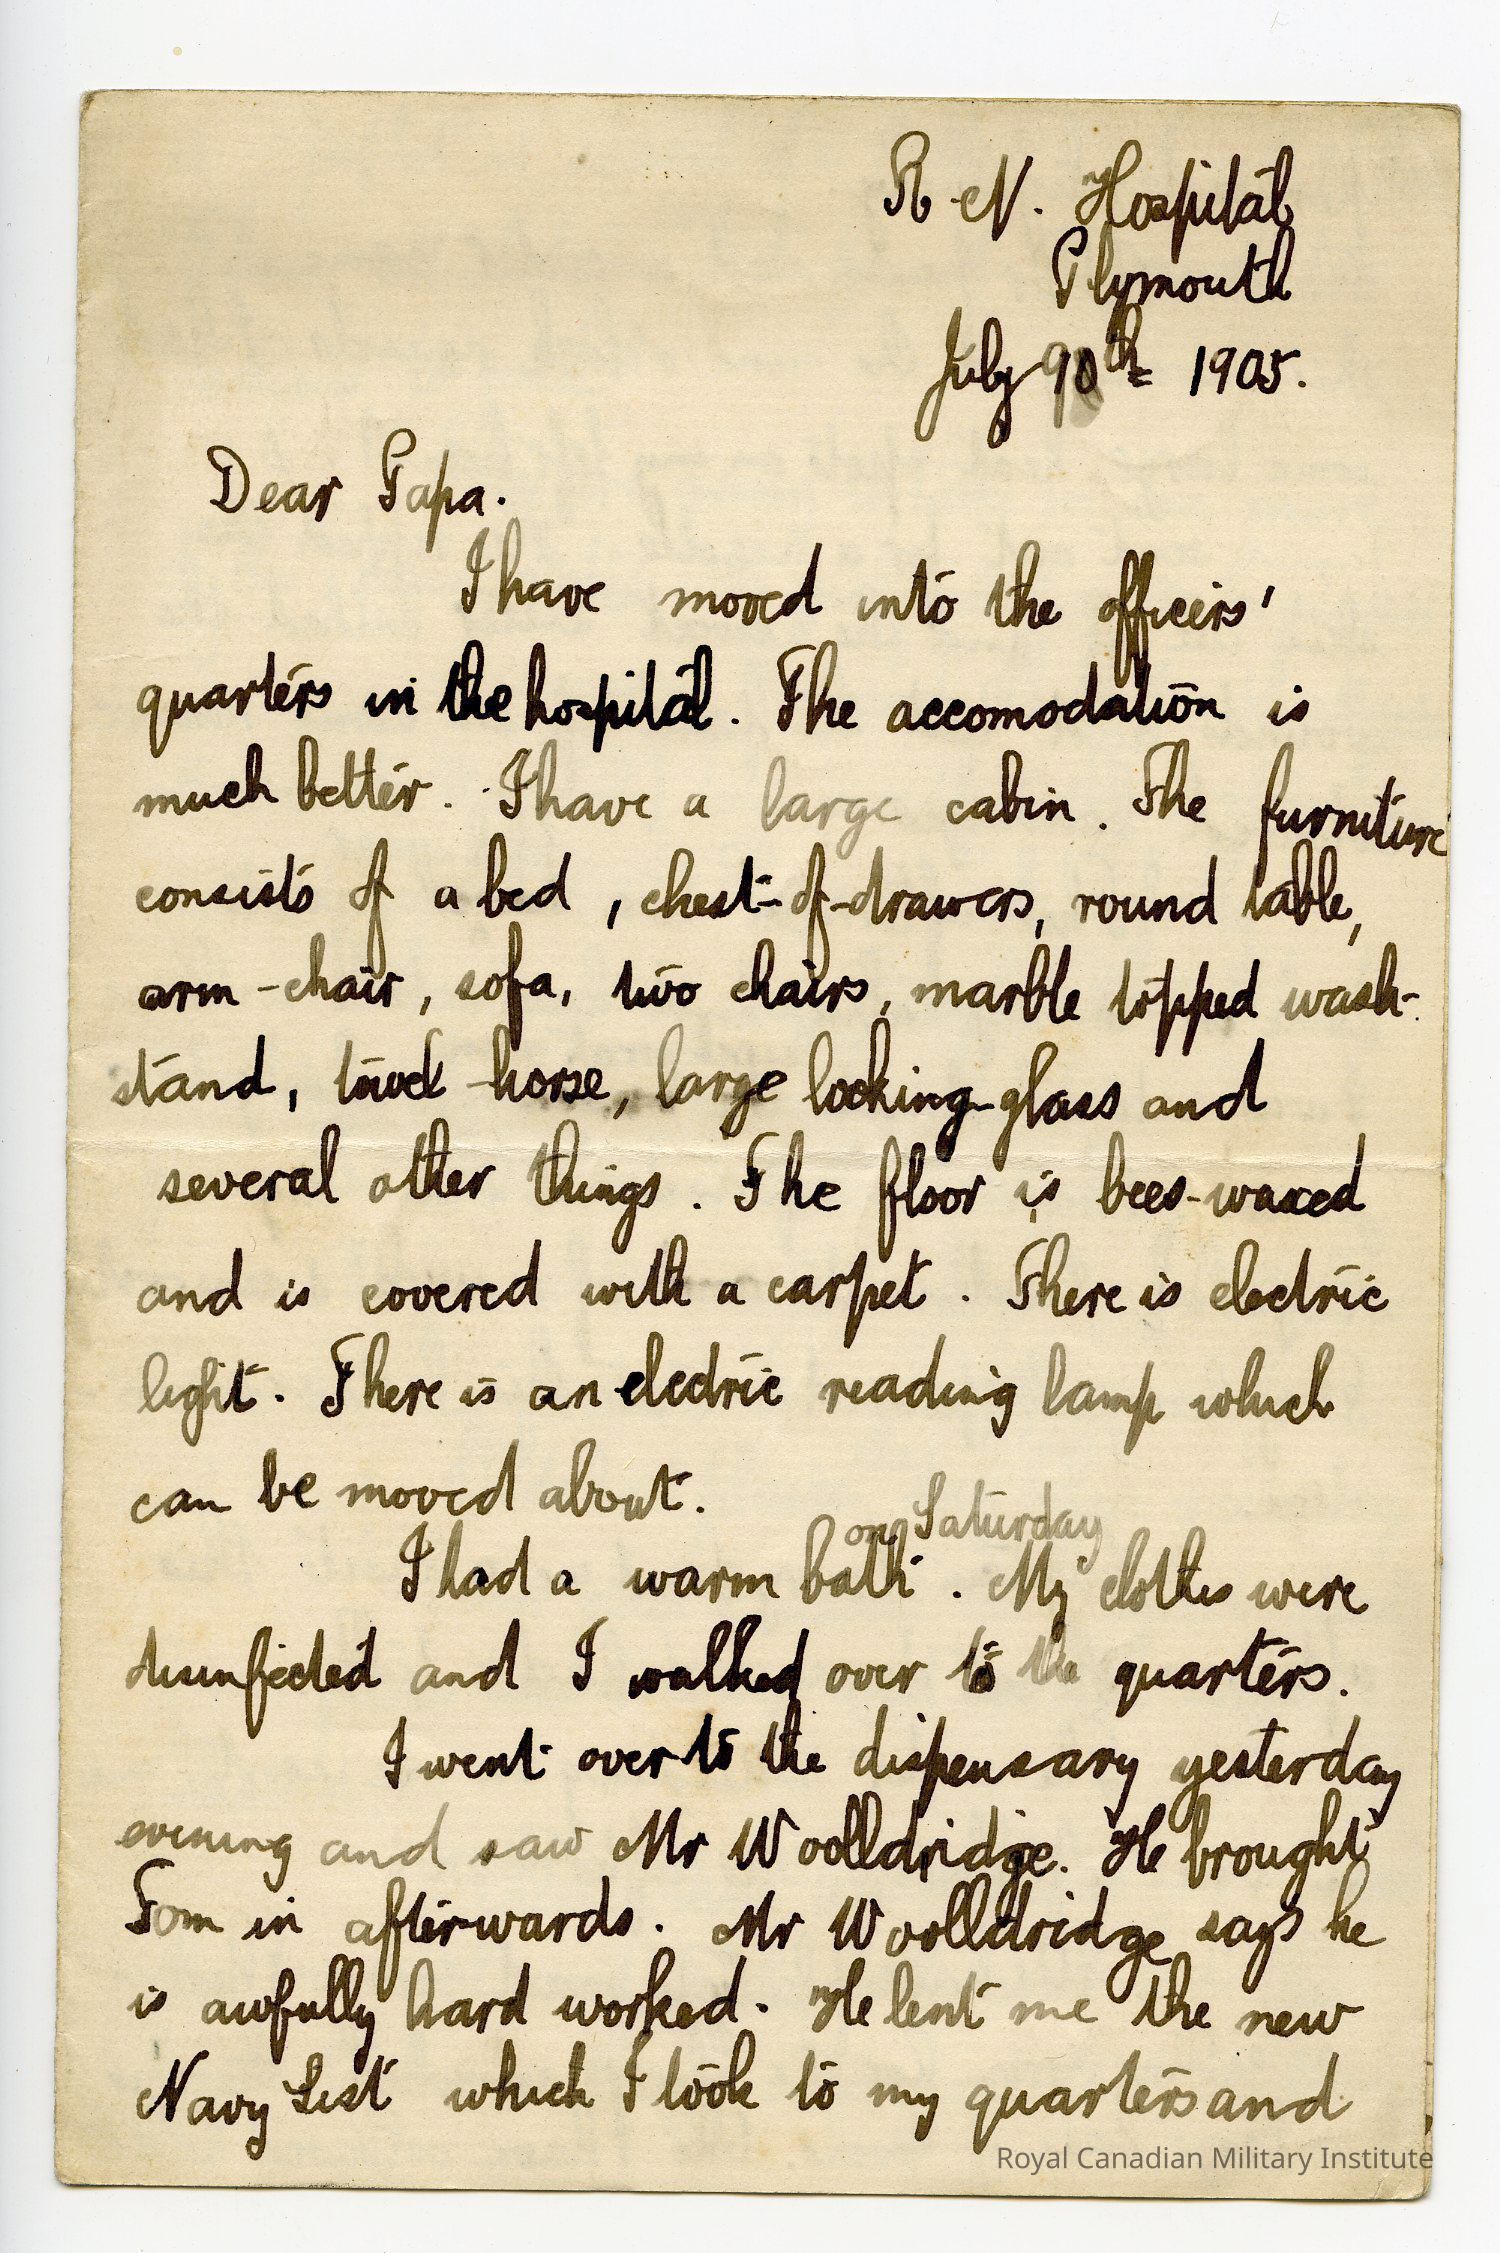 R.N. Hospital
Plymouth
July 10th 1905.
Dear Papa.
I have moved into the officers'
quarters in the hospital. The accomodation is
much better. I have a large cabin. The furniture
consists of a bed, chest-of-drawers, round table,
arm-chair, sofa, two chairs, marble topped wash-
stand, towel-horse, large looking-glass and
several other things. The floor is bees-waxed
and is covered with a carpet. There is electric
light. There is an electric reading lamp which
can be moved about.
on Saturday
I had a warm bath. My clothes were
disinfected and I walked over to the quarters.
I went over to the dispensary yesterday
evening and saw Mr Woolldridge. He brought
Tom in afterwards. Mr Woolldridge says he
is awfully hard worked. He lent me the new
Navy List which I took to my quarters and
Royal Canadian Military Institute